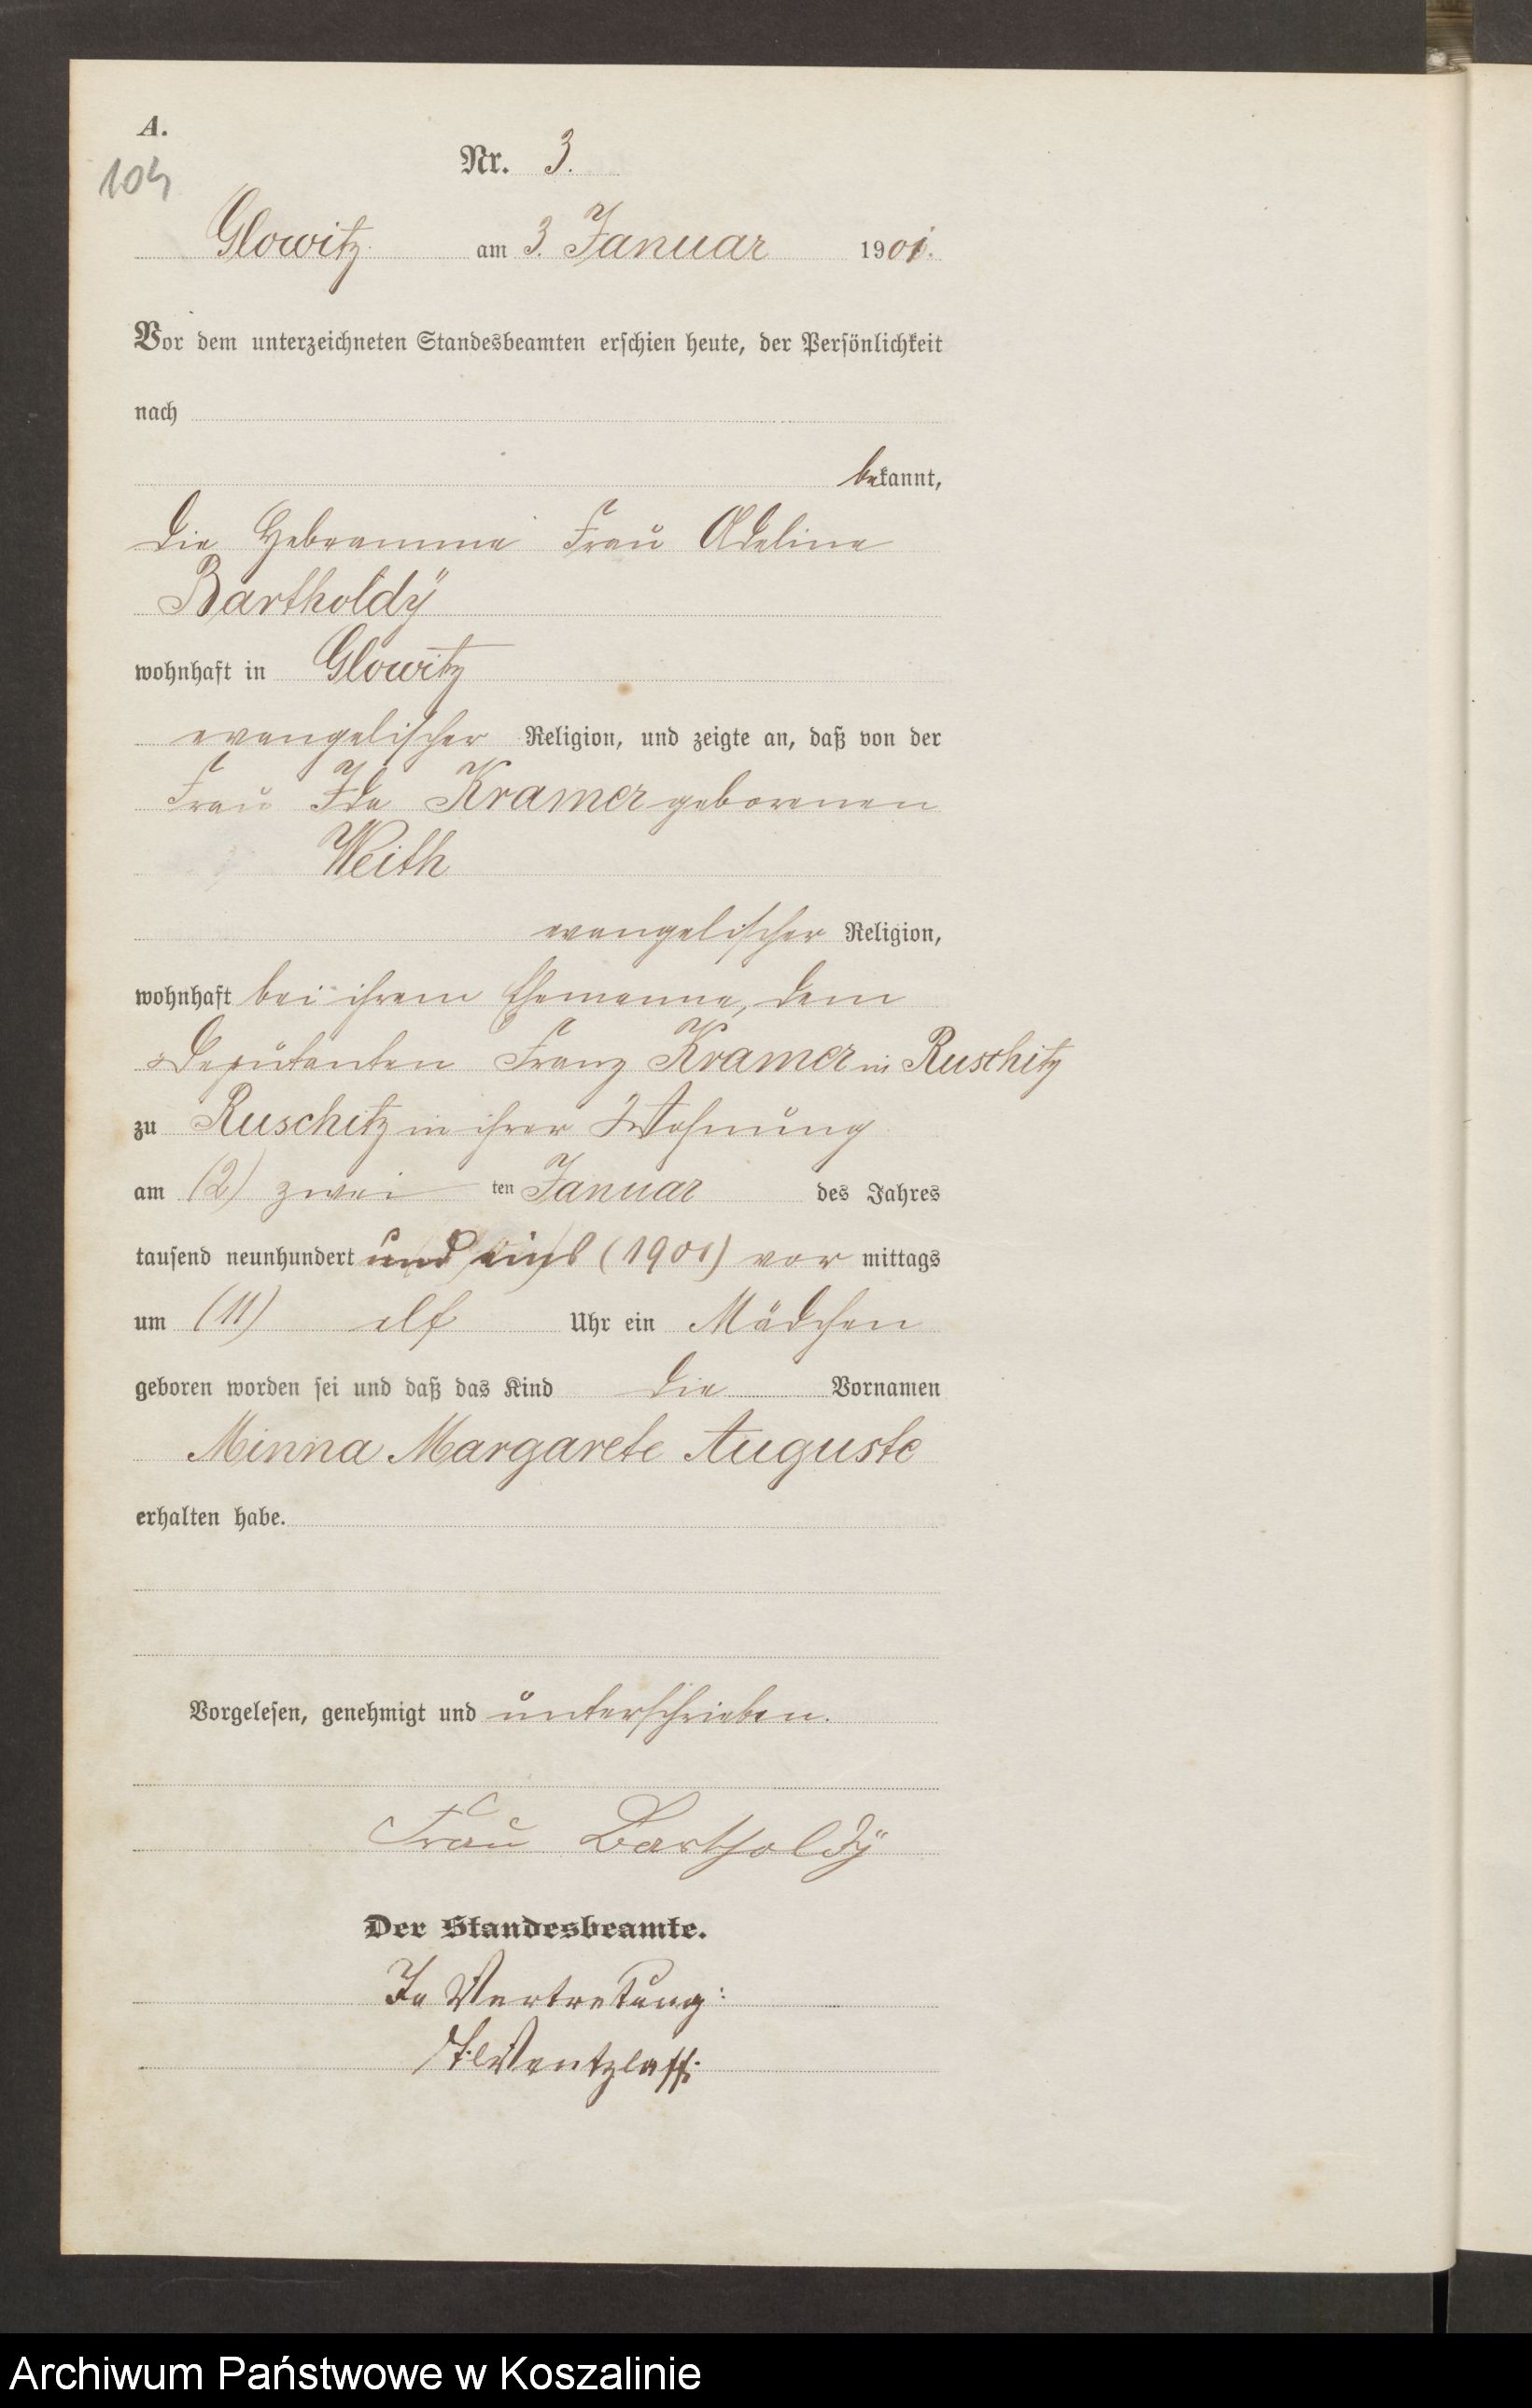 A.
104
Nr. 3.
Glowitz am 3. Januar 1901.
Vor dem unterzeichneten Standesbeamten erschien heute, der Persönlichkeit
nach
bekannt,
die Hebeamme Frau Adeline
Bartholdÿ
wohnhaft in Glowitz
evangelischer Religion, und zeigte an, daß von der
Frau Ida Kramer geborenen
Weith
evangelischer Religion,
wohnhaft bei ihrem Ehemanne, dem
Deputanten Franz Kramer in Ruschitz
zu Ruschitz in ihrer Wohnung
am (2) zwei ten Januar des Jahres
tausend neunhundert und eins (1901) vor mittags
um (11) elf Uhr ein Mädchen
geboren worden sei und daß das Kind die Vornamen
Minna Margarete Auguste
erhalten habe.
Vorgelesen, genehmigt und unterschrieben.
Frau Bartholdÿ
Der Standesbeamte.
In Vertretung:
Wentzlaff.
Archiwum Państwowe w Koszalinie